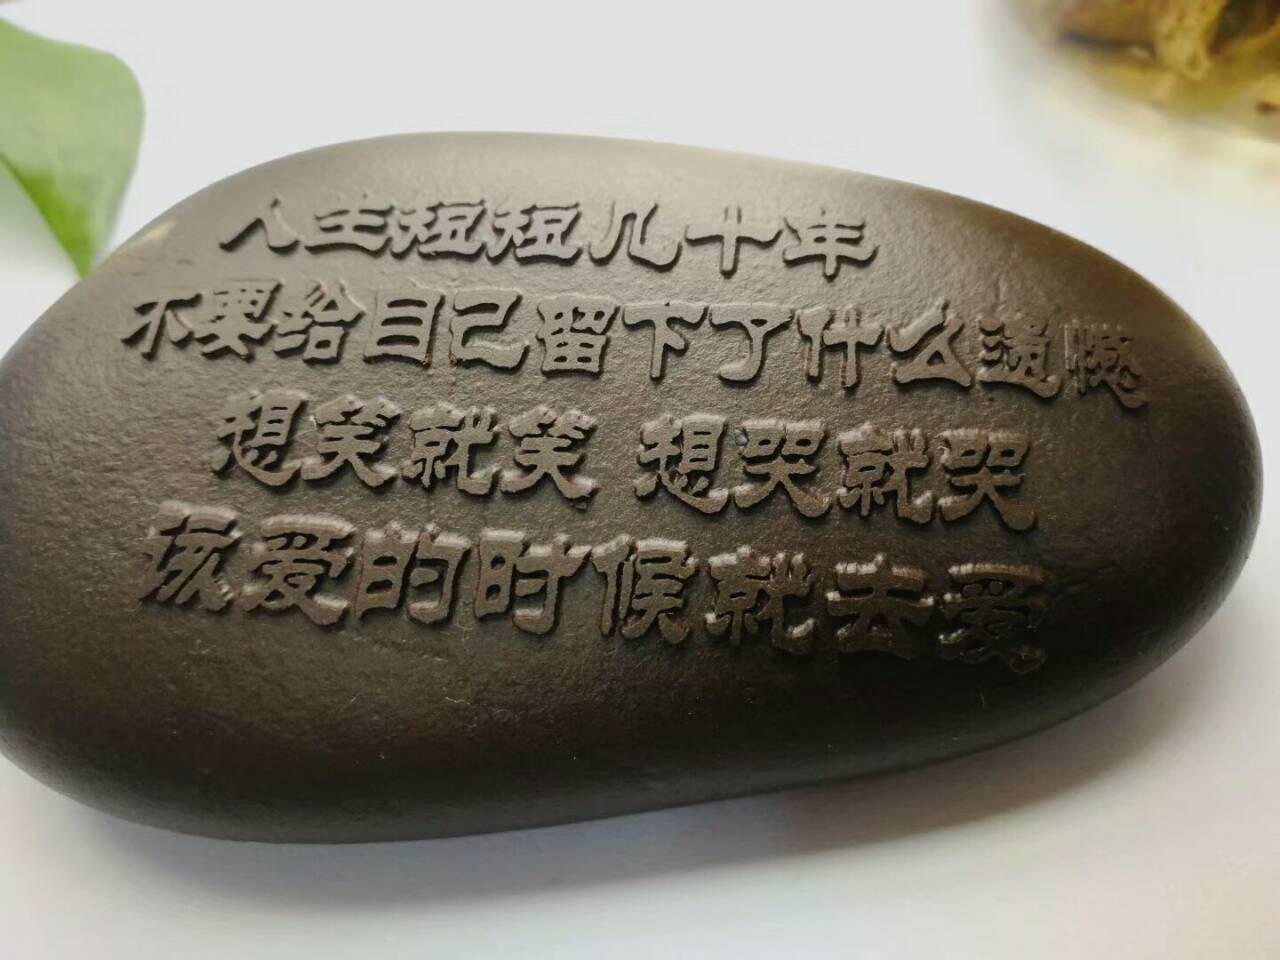 人生短短几十年
不要给自己留下了什么遗憾
想笑就笑 想哭就哭
该爱的时候就去爱